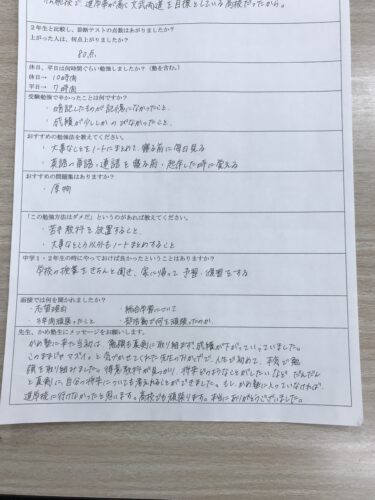 進学率が高く文武両道を目標としている高校だったから。
2年生と比較し、診断テストの点数はあがりましたか?
上がった人は、何点上がりましたか?
80点
休日、平日は何時間ぐらい勉強しましたか?(塾を含む。)
休日→ 10時間
平日→ 7時間
受験勉強で辛かったことは何ですか?
・暗記したものが記憶になかったこと。
・成績が少ししかのびなかったこと。
おすすめの勉強法を教えてください。
・大事なことをノートにまとめて、寝る前に毎日見る
・英語の単語・連語を寝る前・起床した時に覚える
おすすめの問題集はありますか?
・厚物
「この勉強方法はダメだ」というのがあれば教えてください。
・苦手教科を放置すること。
・大事なところ以外もノートまとめすること
中学1・2年生の時にやっておけば良かったということはありますか?
学校の授業をきちんと聞き、家に帰って予習・復習をする
面接では何を聞かれましたか?
・志望理由 ・総合学習について
・3年間頑張ったこと ・部活動で何を頑張ったのか
先生、かめ塾生にメッセージをお願いします。
かめ塾に来た当初は、勉強も真剣に取り組まず、成績が下がっていっていました。
このままじゃマズイ。と気づかせてくれた先生のおかげで、人生で初めて、本気で勉
強を取り組みました。得意教科が見つかり、将来どのようなことがしたいなど、だんだん
と真剣に、自分の将来についても考えれることができました。もし、かめ塾に入っていなければ、
進学校に行けなかったと思います。高校でも頑張ります。本当にありがとうございました。